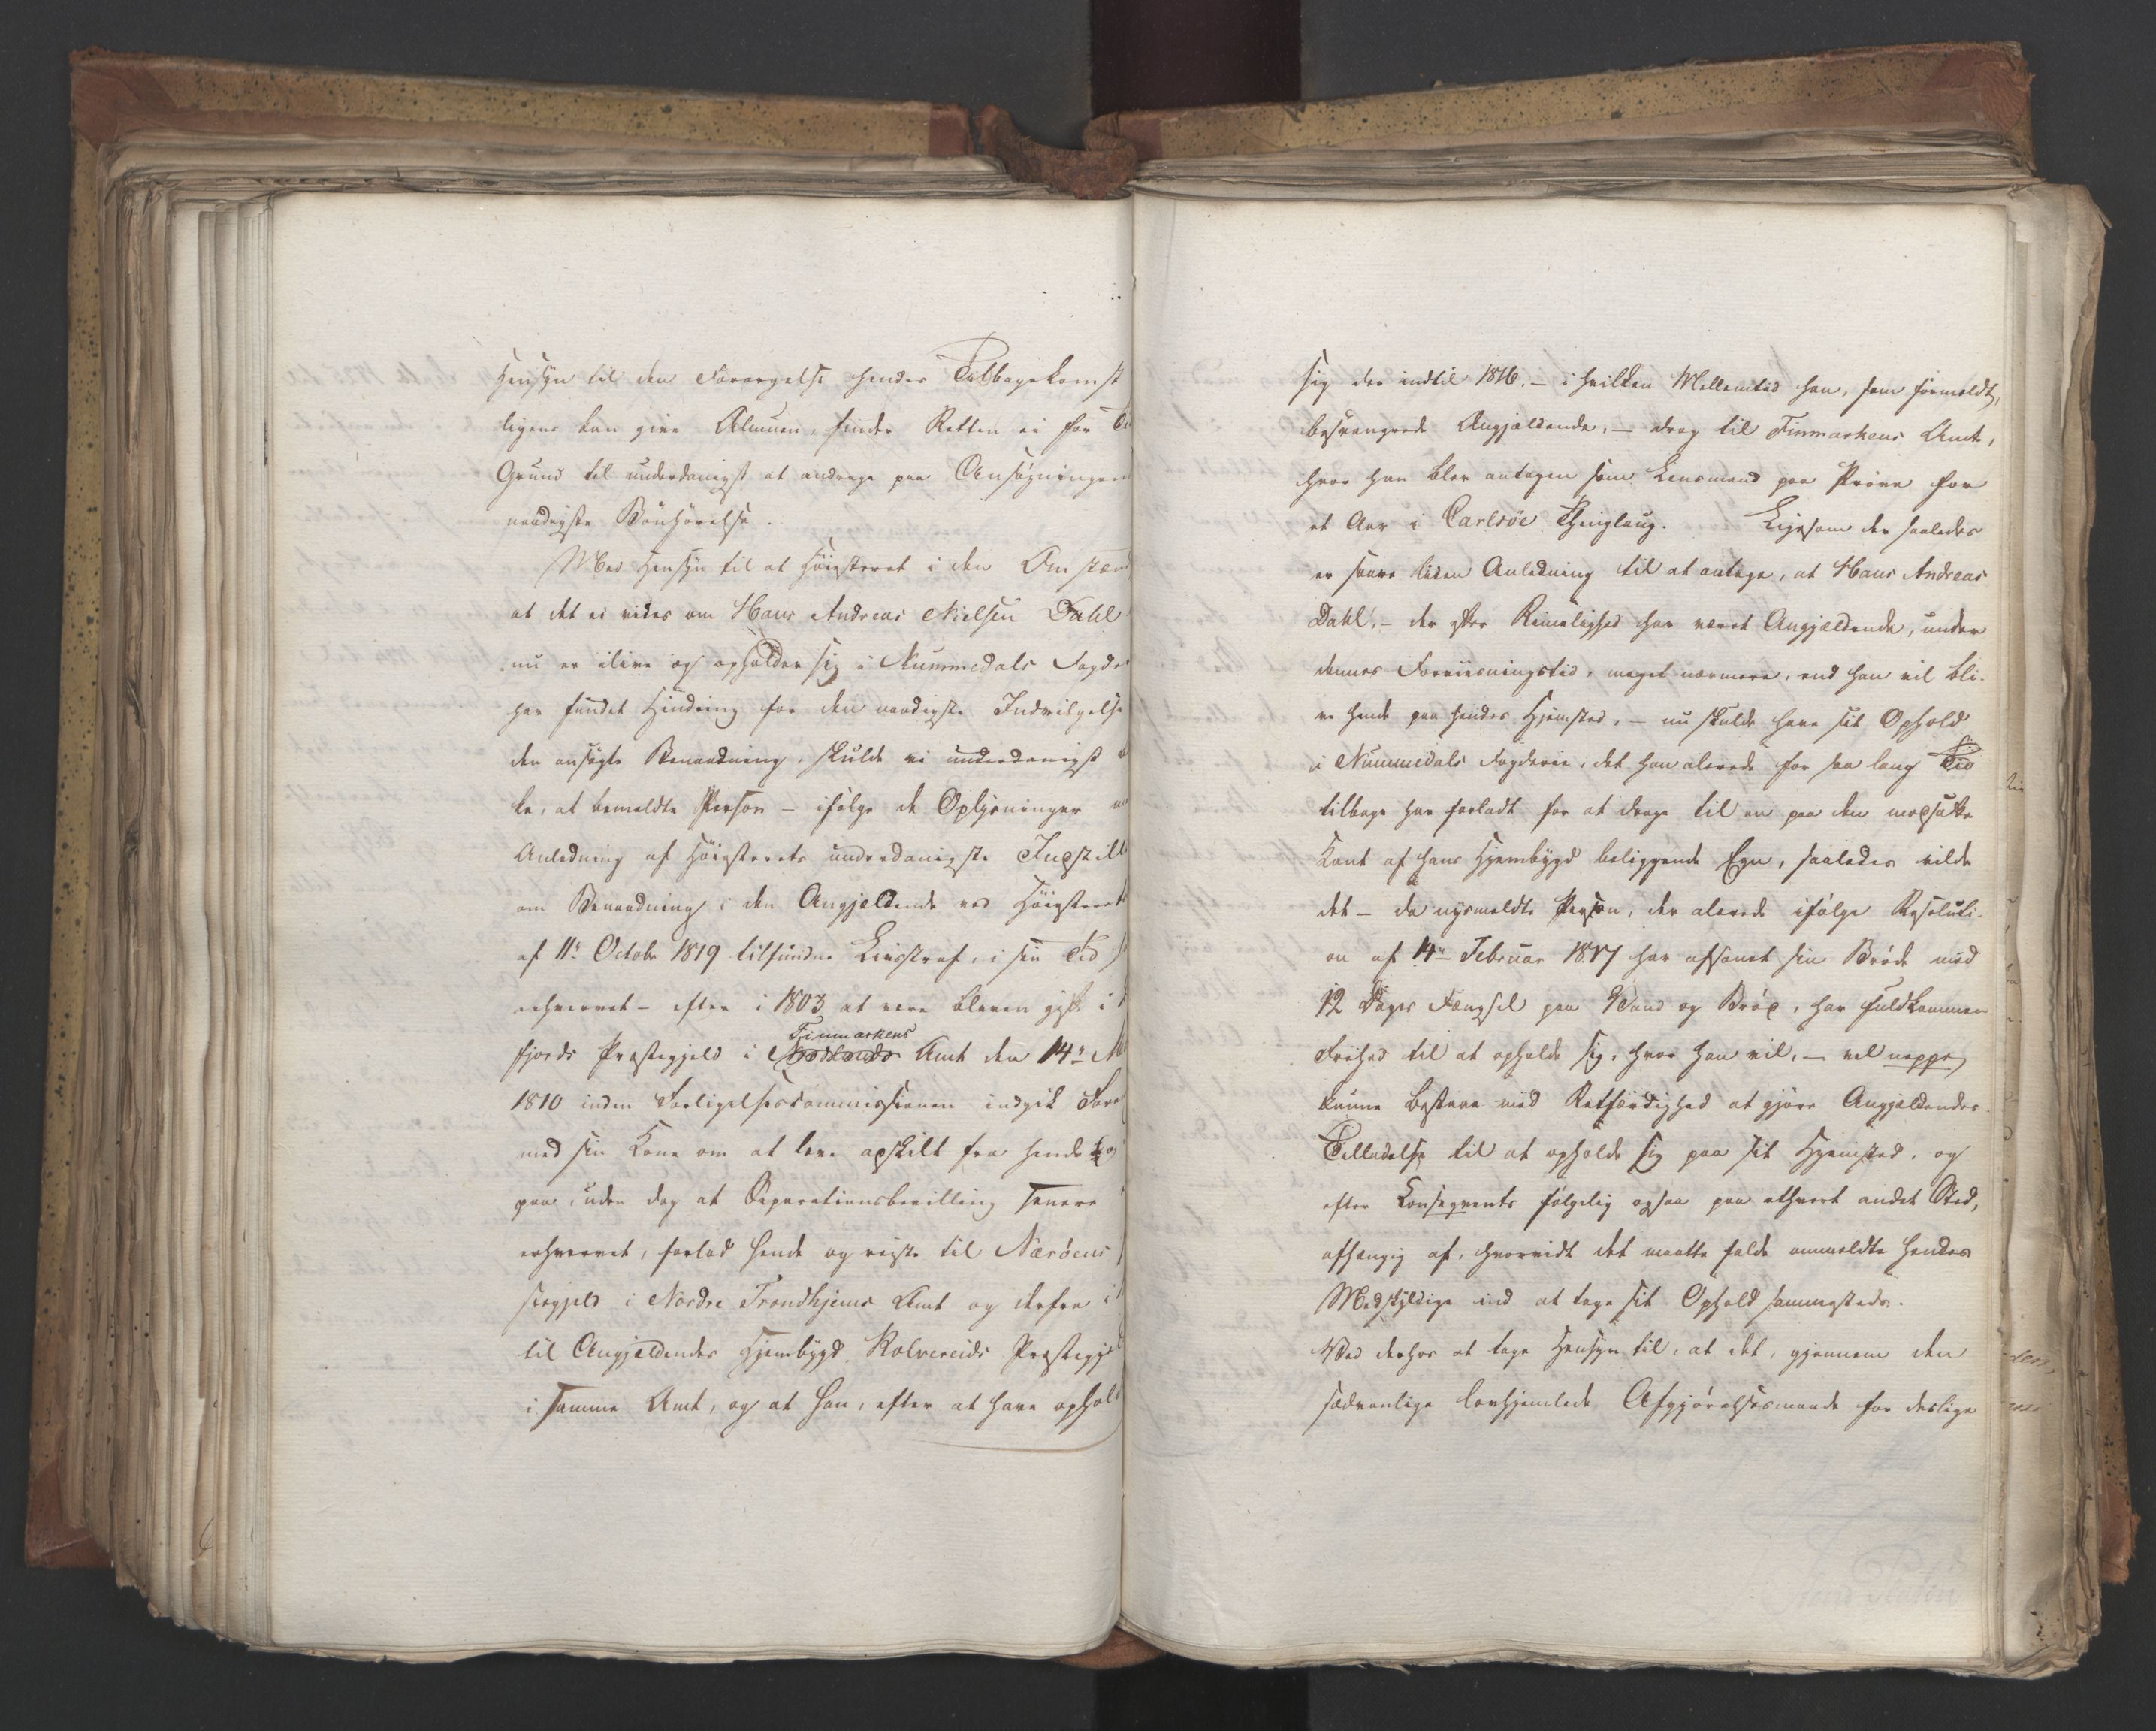 Hensyn til den Forargelse hendes Tilbagekomst
ligens kan give Almuen, finder Retten ei for
Grund til underdanigst at andrage paa Ansøgningen
naadigste Bönhörelse.
Med Hensyn til at Höiesteret i den Omstænd
at det ei vides om Hans Andreas Nielsen Dahl
nu er ilive og opholder sig i Nummedals Fogde
har fundet Hindring for den naadigste Indvilgelse
den ansøgte Benaadning, skulde vi underdanigst
ke, at bemeldte Person – ifølge de Oplysninger
Anledning af Höiesterets underdanigste Indstill
om Benaadning i den Angjældende ved Höiesteret
af 11te Octobr 1819 tilfundne Livsstraf, i sin Tid
erhvervet – efter i 1803 at være bleven gift i
fjords Præstegjeld i Finmarkens Amt den 14de
1810 inden Forligelsescommissionen indgik Fore
med sin Kone om at leve adskilt fra hende og
paa, uden dog at Separationsbevilling senere
erhvervet, forlod hende og reiste til Næröens
stegjeld i Nordre Trondhjems Amt og derfra i
til Angjældendes Hjembygd, Kolvereids Præstegje
i samme Amt, og at han, efter at have ophold
sig der indtil 1816. – i hvilken Mellemtid han, som formeldt,
besvangrede Angjældende, – drog til Finmarkens Amt,
hvor han blev antagen som Lensmand paa Pröve for
et Aar i Carlsöe Thinglaug. Ligesom der saaledes
er saare liden Anledning til at antage, at Hans Andreas
Dahl, – der efter Rimelighed har været Angjældende, under
dennes Forviisningstid, meget nærmere, end han vil bli-
ve hende paa hendes Hjemsted, – nu skulde have sit Ophold
i Nummedals Fogderie, det han allerede for saa lang Tid
tilbage har forladt for at drage til en paa den modsatte
Kant af hans Hjembygd beliggende Egn, saaledes vilde
det – da nysmeldte Person, der allerede ifølge Resoluti-
on af 14de Februar 1817 har afsonet sin Bröde med
12 Dages Fængsel paa Vand og Bröd, har fuldkommen
Frihed til at opholde sig, hvor han vil, – vel neppe
kunne bestaae med Retfærdighed at gjöre Angjældendes
Tilladelse til at opholde sig paa sit Hjemsted, og
efter Konseqvents følgelig ogsaa paa ethvert andet Sted,
afhængig af, hvorvidt det maatte falde ommeldte hendes
Medskyldige ind at tage sit Ophold sammesteds.
Ved derhos at tage Hensyn til, at det, gjennem den
sædvanlige lovhjemlede Afgjörelsesmaade for deslige